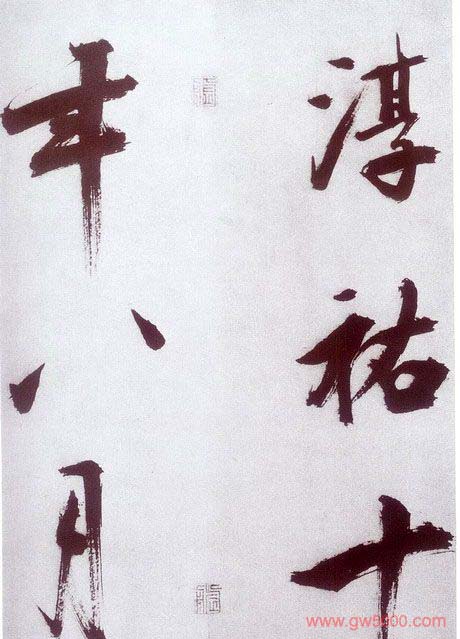 淳祐十
年八月
www.gw9900.com